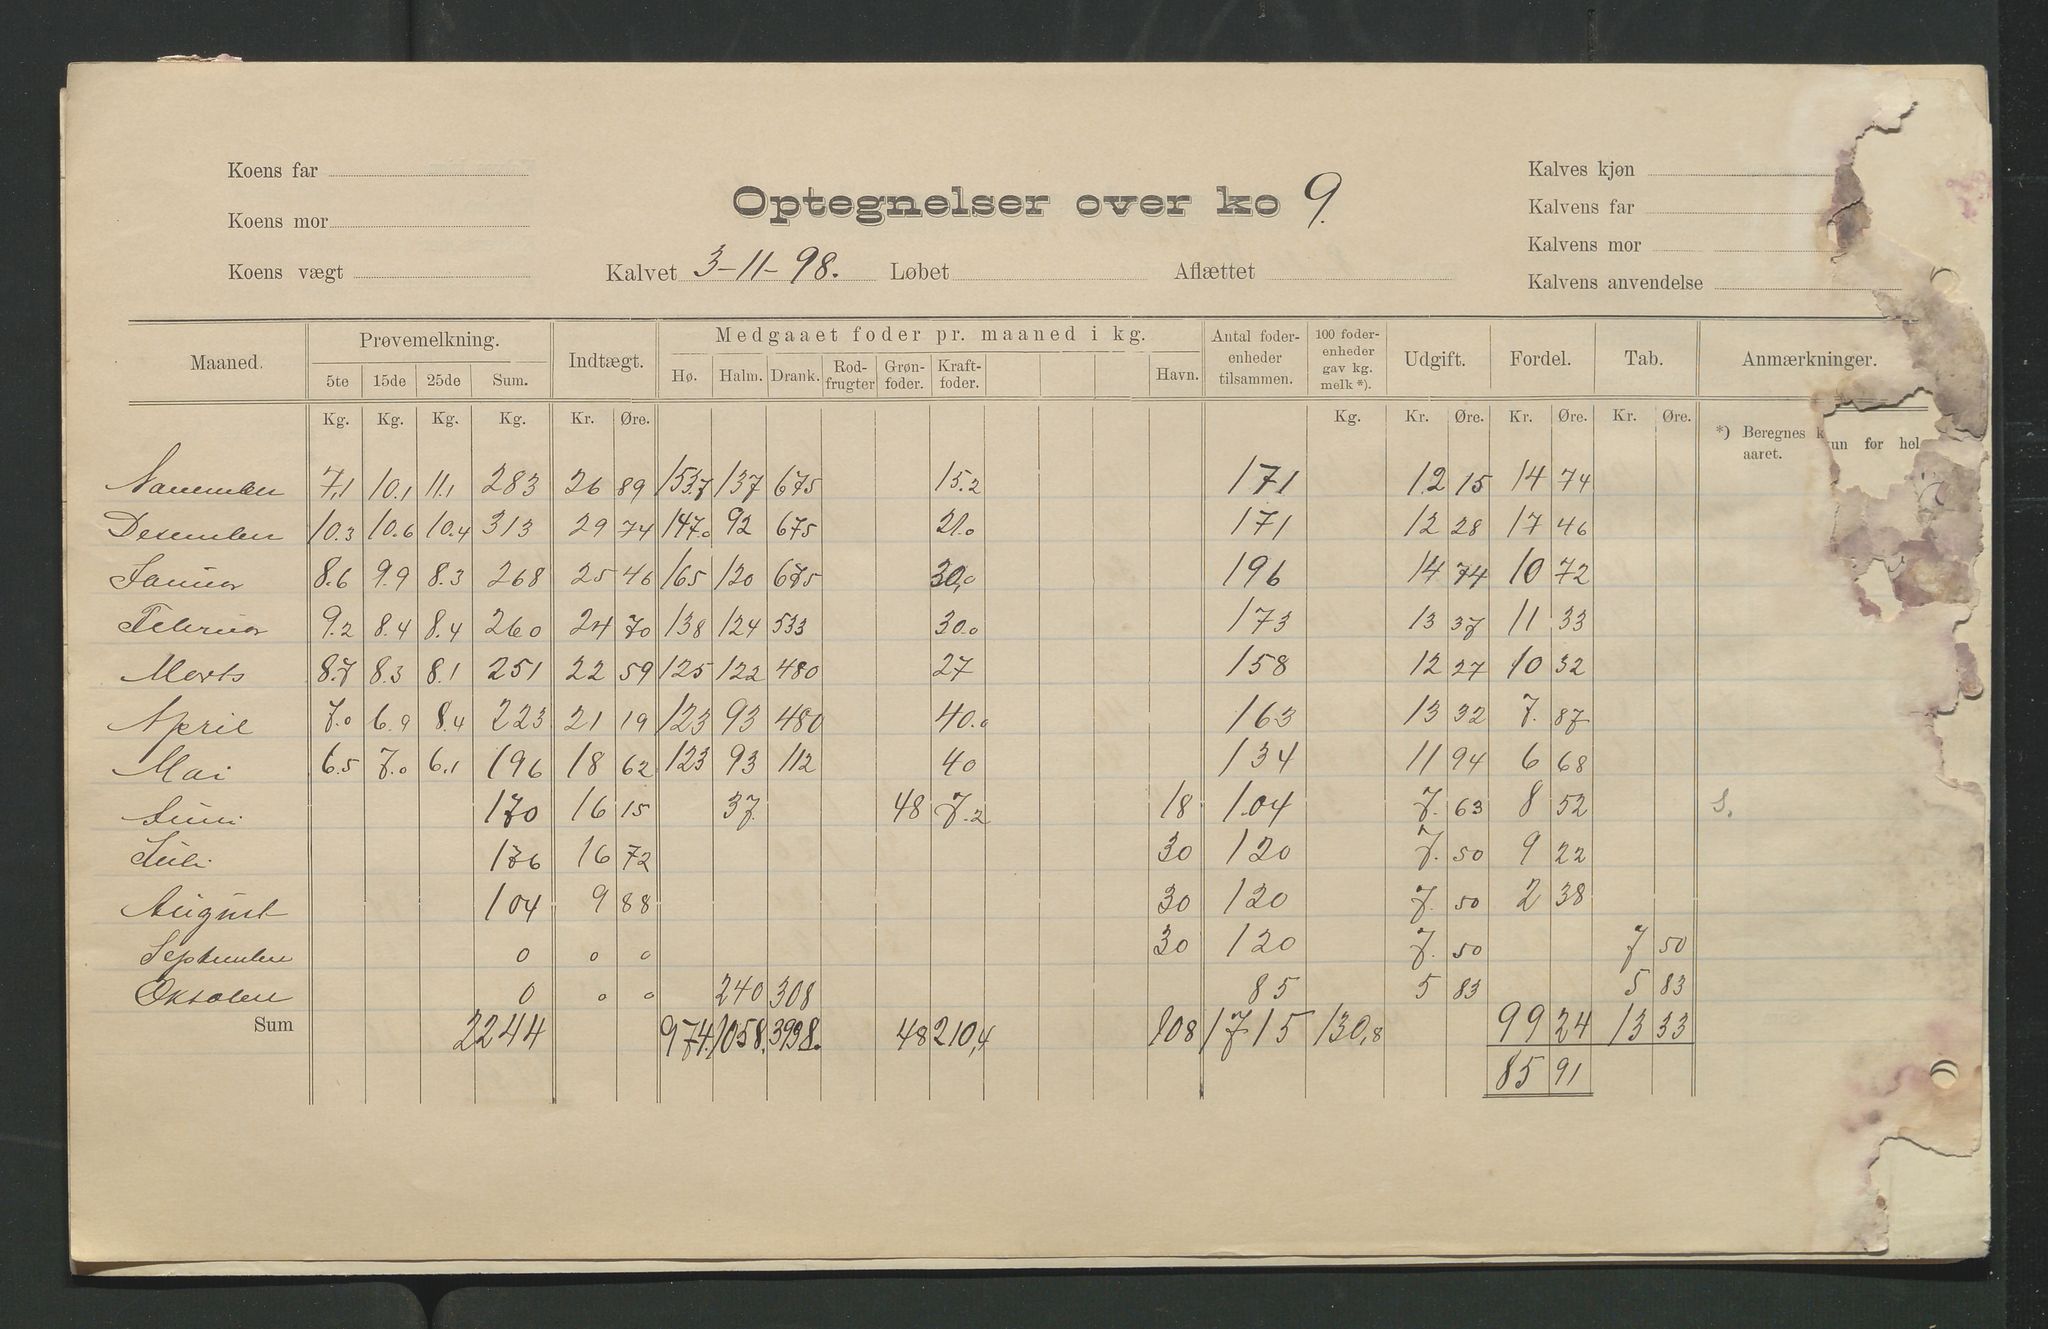 Koens far
Koens mor
Koens vægt
Optegnelser over ko 9.
Kalvet 3-11-98. Løbet Aflættet
Kalves kjøn
Kalvens far
Kalvens mor
Kalvens anvendelse
Maaned. Prøvemelkning. Indtægt. Medgaaet foder pr. maaned i kg. Antal foder-enheder tilsammen. 100 foder-enheder gav kg. melk *). Udgift. Fordel. Tab. Anmærkninger.
5te 15de 25de Sum. Hø. Halm. Drank. Rod-frugter Grøn-foder. Kraft-foder. Havn.
Kg. Kg. Kg. Kg. Kr. Øre. Kg. Kr. Øre. Kr. Øre. Kr. Øre.
*) Beregnes kun for hel
aaret.
November 7,1 10.1 11.1 283 26 89 153.7 137 675 15.2 171 12 15 14 74
Desember 10.3 10.6 10.4 313 29 74 147.0 92 675 21.0 171 12 28 17 46
Januar 8.6 9.9 8.3 268 25 46 165 120 675 30,0 196 14 74 10 72
Februar 9.2 8.4 8.4 260 24 70 138 124 533 30.0 173 13 37 11 33
Marts 8.7 8.3 8.1 251 22 59 125 122 480 27 158 12 27 10 32
April 7.0 6.9 8.4 223 21 19 123 93 480 40.0 163 13 32 7. 87
Mai 6.5 7.0 6.1 196 18 62 123 93 112 40 134 11 94 6 68
Juni 170 16 15 37. 48 7.2 18 104 7. 63 8 52 S.
Juli 176 16 72 30 120 7. 50 9 22
August 104 9 88 30 120 7. 50 2 38
September 0 0 0 30 120 7. 50 7 50
Oktober 0 0 0 240 308 85 5 83 5 83
Sum 2244 974. 1058. 3938. 48 210,4 108 1715 130,8 99 24 13 33
85 91